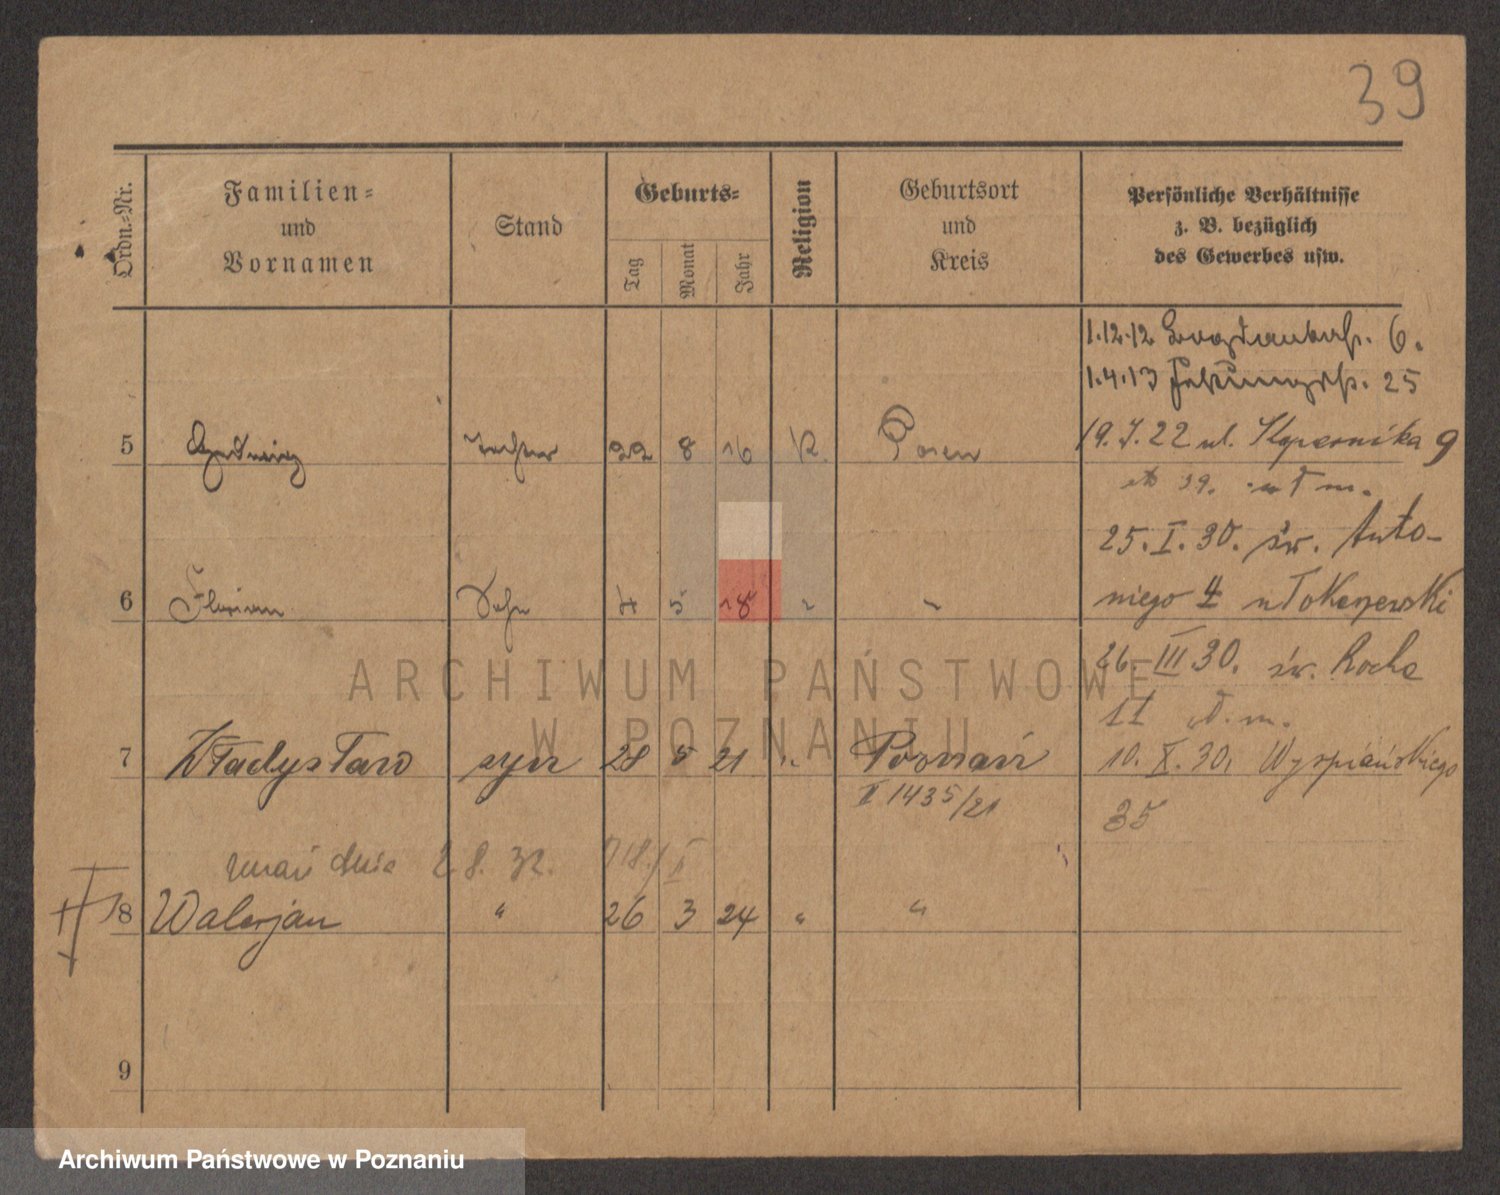 39
Ordn.-Nr.
Familien-
und
Vornamen
Stand
Geburts-
Tag
Monat
Jahr
Religion
Geburtsort
und
Kreis
Persönliche Verhältnisse
z. B. bezüglich
des Gewerbes usw.
1.12.12 6.
1.4.13 25
5 Hedwig Tochter 22 8 16 K. Posen
19. 22 ul. Kopernika 9
39. m.
25. I. 30. św. Anto-
6 Florian Sohn 4 5 18 " "
niego 4
26 III 30. św. Rocha
11 m.
7 Władysław syn 28 5 21 " Poznań
10. X. 30, Wyspiańskiego
II 1435/21
35
zmarł dnia 2. 8. 32. 718/II
8 Walerjan " 26 3 24 " "
9
ARCHIWUM PAŃSTWOWE
W POZNANIU
Archiwum Państwowe w Poznaniu